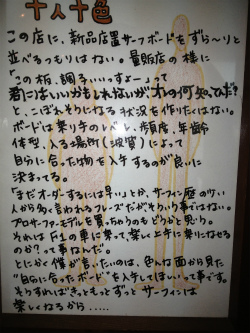 十人十色
この店に、新品店置サーフボードをずら〜りと
並べるつもりはない。量販店の様に
「この板、調子いいっすよー」って
君にはいいかもしれないがオレの何知ってんだ?
と、こぼれそうになる状況を作りたくはない。
ボードは乗り手のレベル、頻度、年齢
体型、入る場所(波質)によって
自分に合った物を入手するのが良いに
決まってる。
「まだオーダーするには早い」とか、サーフィン歴の浅い
人から多く言われるフレーズだがそういう事ではない。
プロサーファーモデルを買っちゃうのもどうかと思う。
それはF1の車に乗って、楽しく上手に乗りこなせる
のか?って事なんだ。
とにかく僕が言いたいのは、色んな面から見た
"自分に合ったボード"を入手してほしいって事です。
そうすればきっともっとずっとサーフィンは
楽しくなるから.....